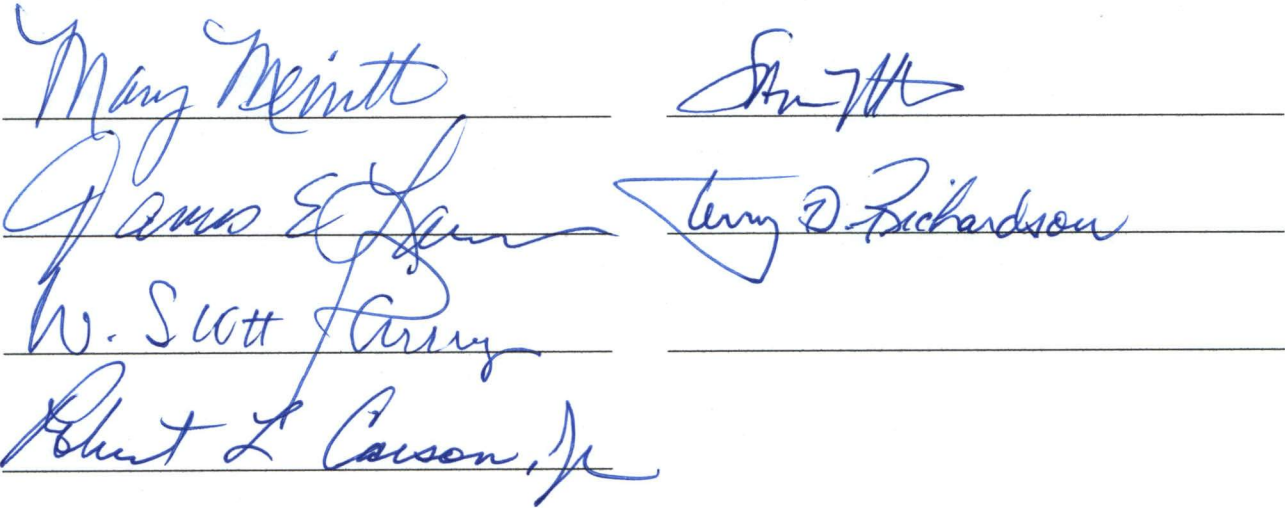 Mary Merritt
James E.
W. Scott
Robert L Carson, Jr
Terry D. Richardson